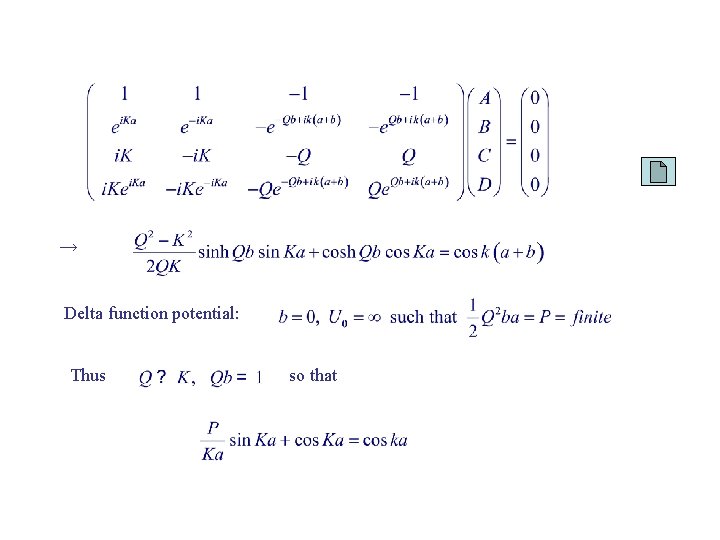 1 1 −1 −1 A 0
e^{iKa} e^{−iKa} −e^{Qb+ik(a+b)} −e^{Qb+ik(a+b)} B 0
iK −iK −Q Q C = 0
iKe^{iKa} −iKe^{−iKa} −Qe^{−Qb+ik(a+b)} Qe^{Qb+ik(a+b)} D 0
→ \frac{Q^2 − K^2}{2QK} sinh Qb sin Ka + cosh Qb cos Ka = cos k (a + b)
Delta function potential: b = 0, U_0 = ∞ such that \frac{1}{2} Q^2ba = P = finite
Thus Q ? K, Qb = 1 so that
\frac{P}{Ka} sin Ka + cos Ka = cos ka